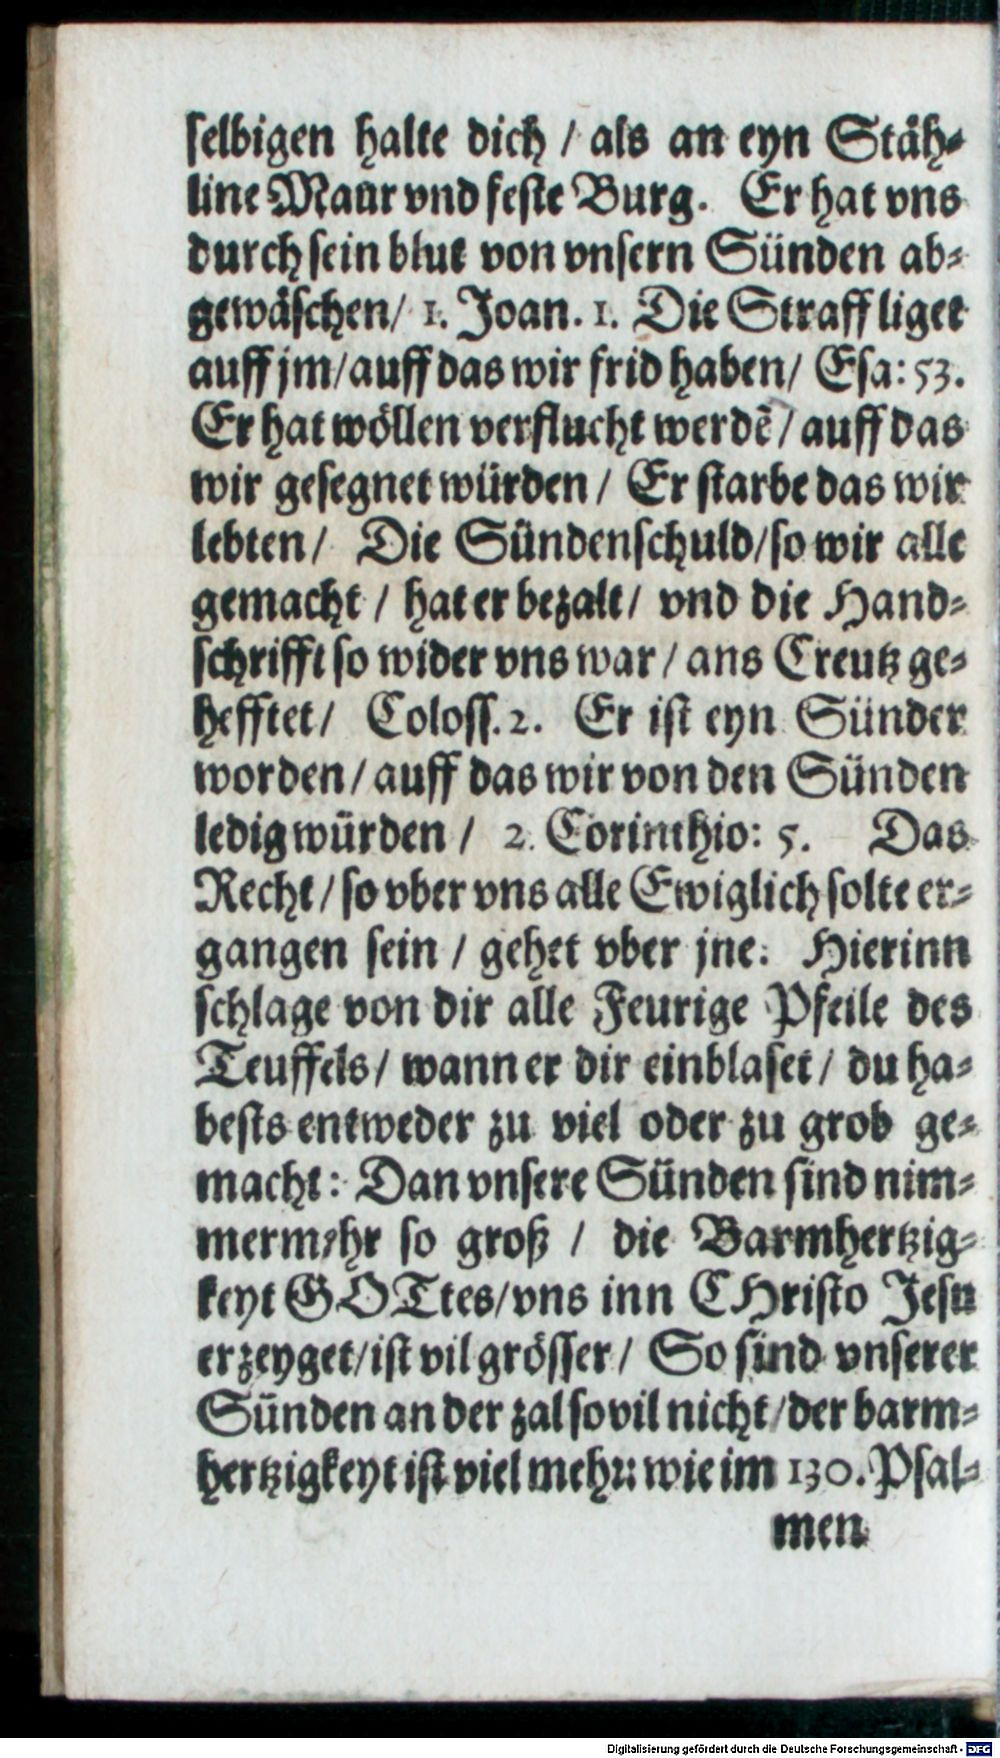 ſelbigen halte dich / als an eyn Stäh⸗
line Maur vnd feſte Burg. Er hat vns
durch ſein blut von vnſern Sünden ab⸗
gewäſchen / 1. Joan. 1. Die Straff liget
auff jm / auff das wir frid haben / Eſa: 53.
Er hat wöllen verflucht werdẽ / auff das
wir geſegnet würden / Er ſtarbe das wir
lebten / Die Sündenſchuld / ſo wir alle
gemacht / hat er bezalt / vnd die Hand⸗
ſchrifft ſo wider vns war / ans Creutz ge⸗
hefftet / Coloſſ. 2. Er iſt eyn Sünder
worden / auff das wir von den Sünden
ledig würden / 2. Corinthio: 5. Das
Recht / ſo vber vns alle Ewiglich ſolte er⸗
gangen ſein / gehet vber jne: Hierinn
ſchlage von dir alle Feurige Pfeile des
Teuffels / wann er dir einblaſet / du ha⸗
beſts entweder zu viel oder zu grob ge⸗
macht: Dan vnſere Sünden ſind nim⸗
mermehr ſo groß / die Barmhertzig⸗
keyt GOTtes / vns inn CHriſto Jeſu
erzeyget / iſt vil gröſſer / So ſind vnſerer
Sünden an der zal ſo vil nicht / der barm⸗
hertzigkeyt iſt viel mehr: wie im 130. Pſal⸗
men
Digitalisierung gefördert durch die Deutsche Forschungsgemeinschaft - DFG